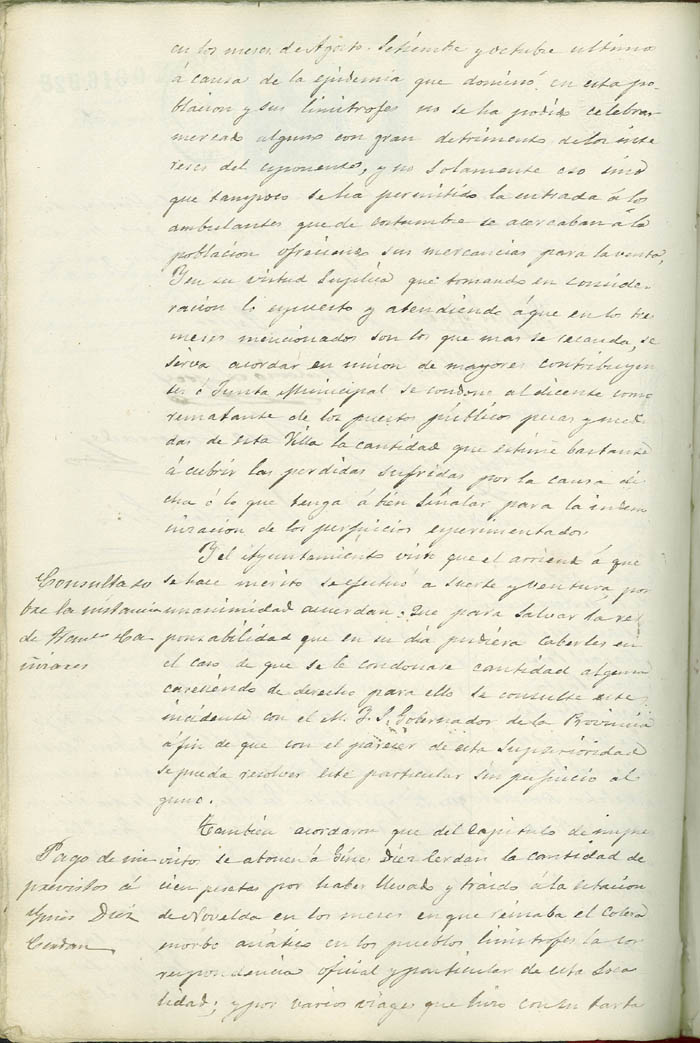 en los meses de Agosto Setiembre y octubre ultimos
á causa de la epidemia que dominó en esta po-
blacion y sus limitrofes no se ha podido celebrar
mercado alguno con gran detrimento de los inte
reses del esponente, y no solamente eso sino
que tampoco se ha permitido la entrada á los
ambulantes que de costumbre se acercaban á la
poblacion ofreciendo sus mercancias para la venta,
Y en su virtud suplica que tomando en conside-
racion lo espuesto y atendiendo á que en los tres
meses mencionados son los que mas se recauda, se
sirva acordar en union de mayores contribuyen
tes ó Junta Municipal se condone al dicente como
rematante de los puestos públicos pesas y medi
das de esta Villa la cantidad que estime bastante
á cubrir las perdidas sufridas por la causa di
cha ó lo que tenga á bien señalar para la indem
nizacion de los perjuicios esperimentados
Y el Ayuntamiento visto que el arriendo á que
Consulta so
se hace merito se efectuó a suerte y ventura, por
bre la instancia
unanimidad acuerdan: Que para salvar la res
de
ponsabilidad que en su dia pudiera caberles en
el caso de que se le condonase cantidad alguna
careciendo de derecho para ello se consulte este
incidente con el M. Y. S. Gobernador de la Provincia
á fin de que con el parecer de esta Superioridad
se pueda resolver este particular sin perjuicio al
guno.
Tambien acordaron que del Capitulo de impre
Pago de im
vistos se abonen á Gines Diez Cerdan la cantidad de
previstos á
cien pesetas por haber llevado y traido á la estacion
Gines Diez
de Novelda en los meses en que reinaba el Colera
Cerdan
morbo asiático en los pueblos limitrofes la cor
respondencia oficial y particular de esta loca
lidad; y por varios viages que hizo con su tarta